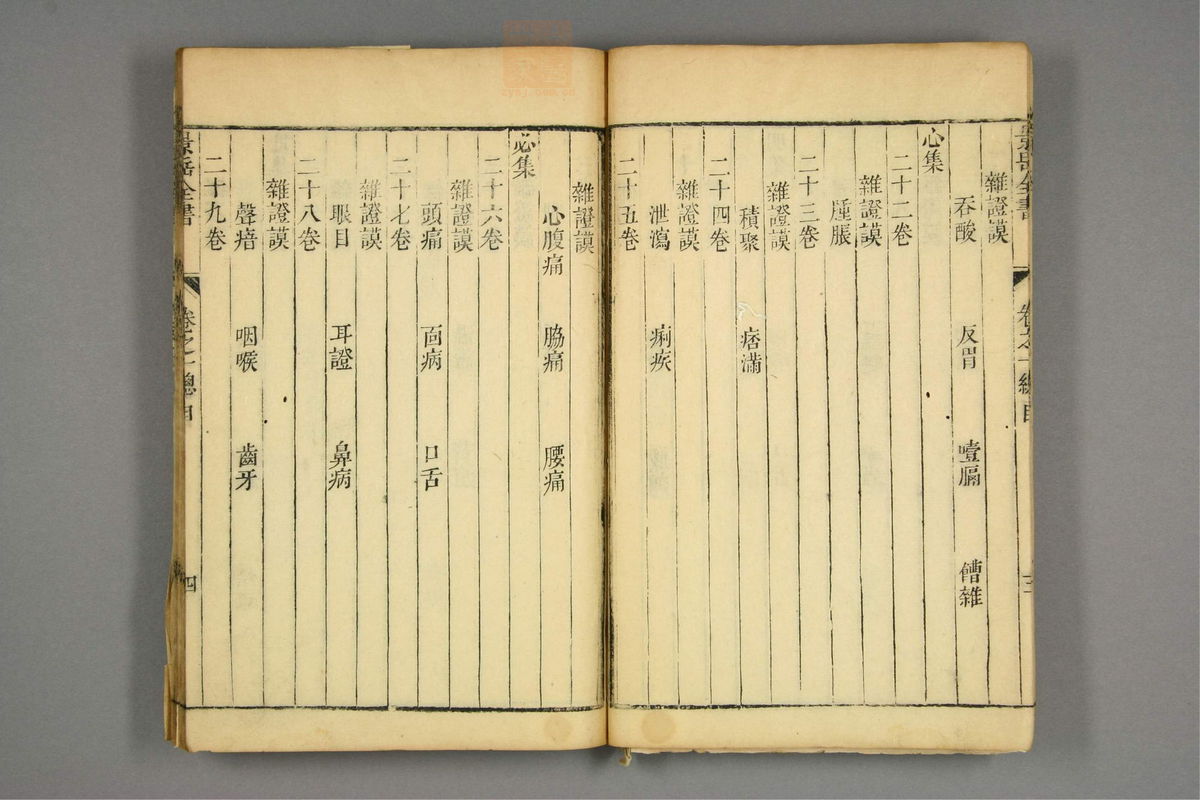 景岳全書 卷之一總目 三
雜證謨
吞酸 反胃 噎膈 𩞄雜
心集
二十二卷
雜證謨
腫脹
二十三卷
雜證謨
積聚 痞滿
二十四卷
雜證謨
泄瀉 痢疾
二十五卷
雜證謨
心腹痛 脇痛 腰痛
必集
二十六卷
雜證謨
頭痛 面病 口舌
二十七卷
雜證謨
眼目 耳證 鼻病
二十八卷
雜證謨
聲瘖 咽喉 齒牙
二十九卷
景岳全書 卷之一總目 四